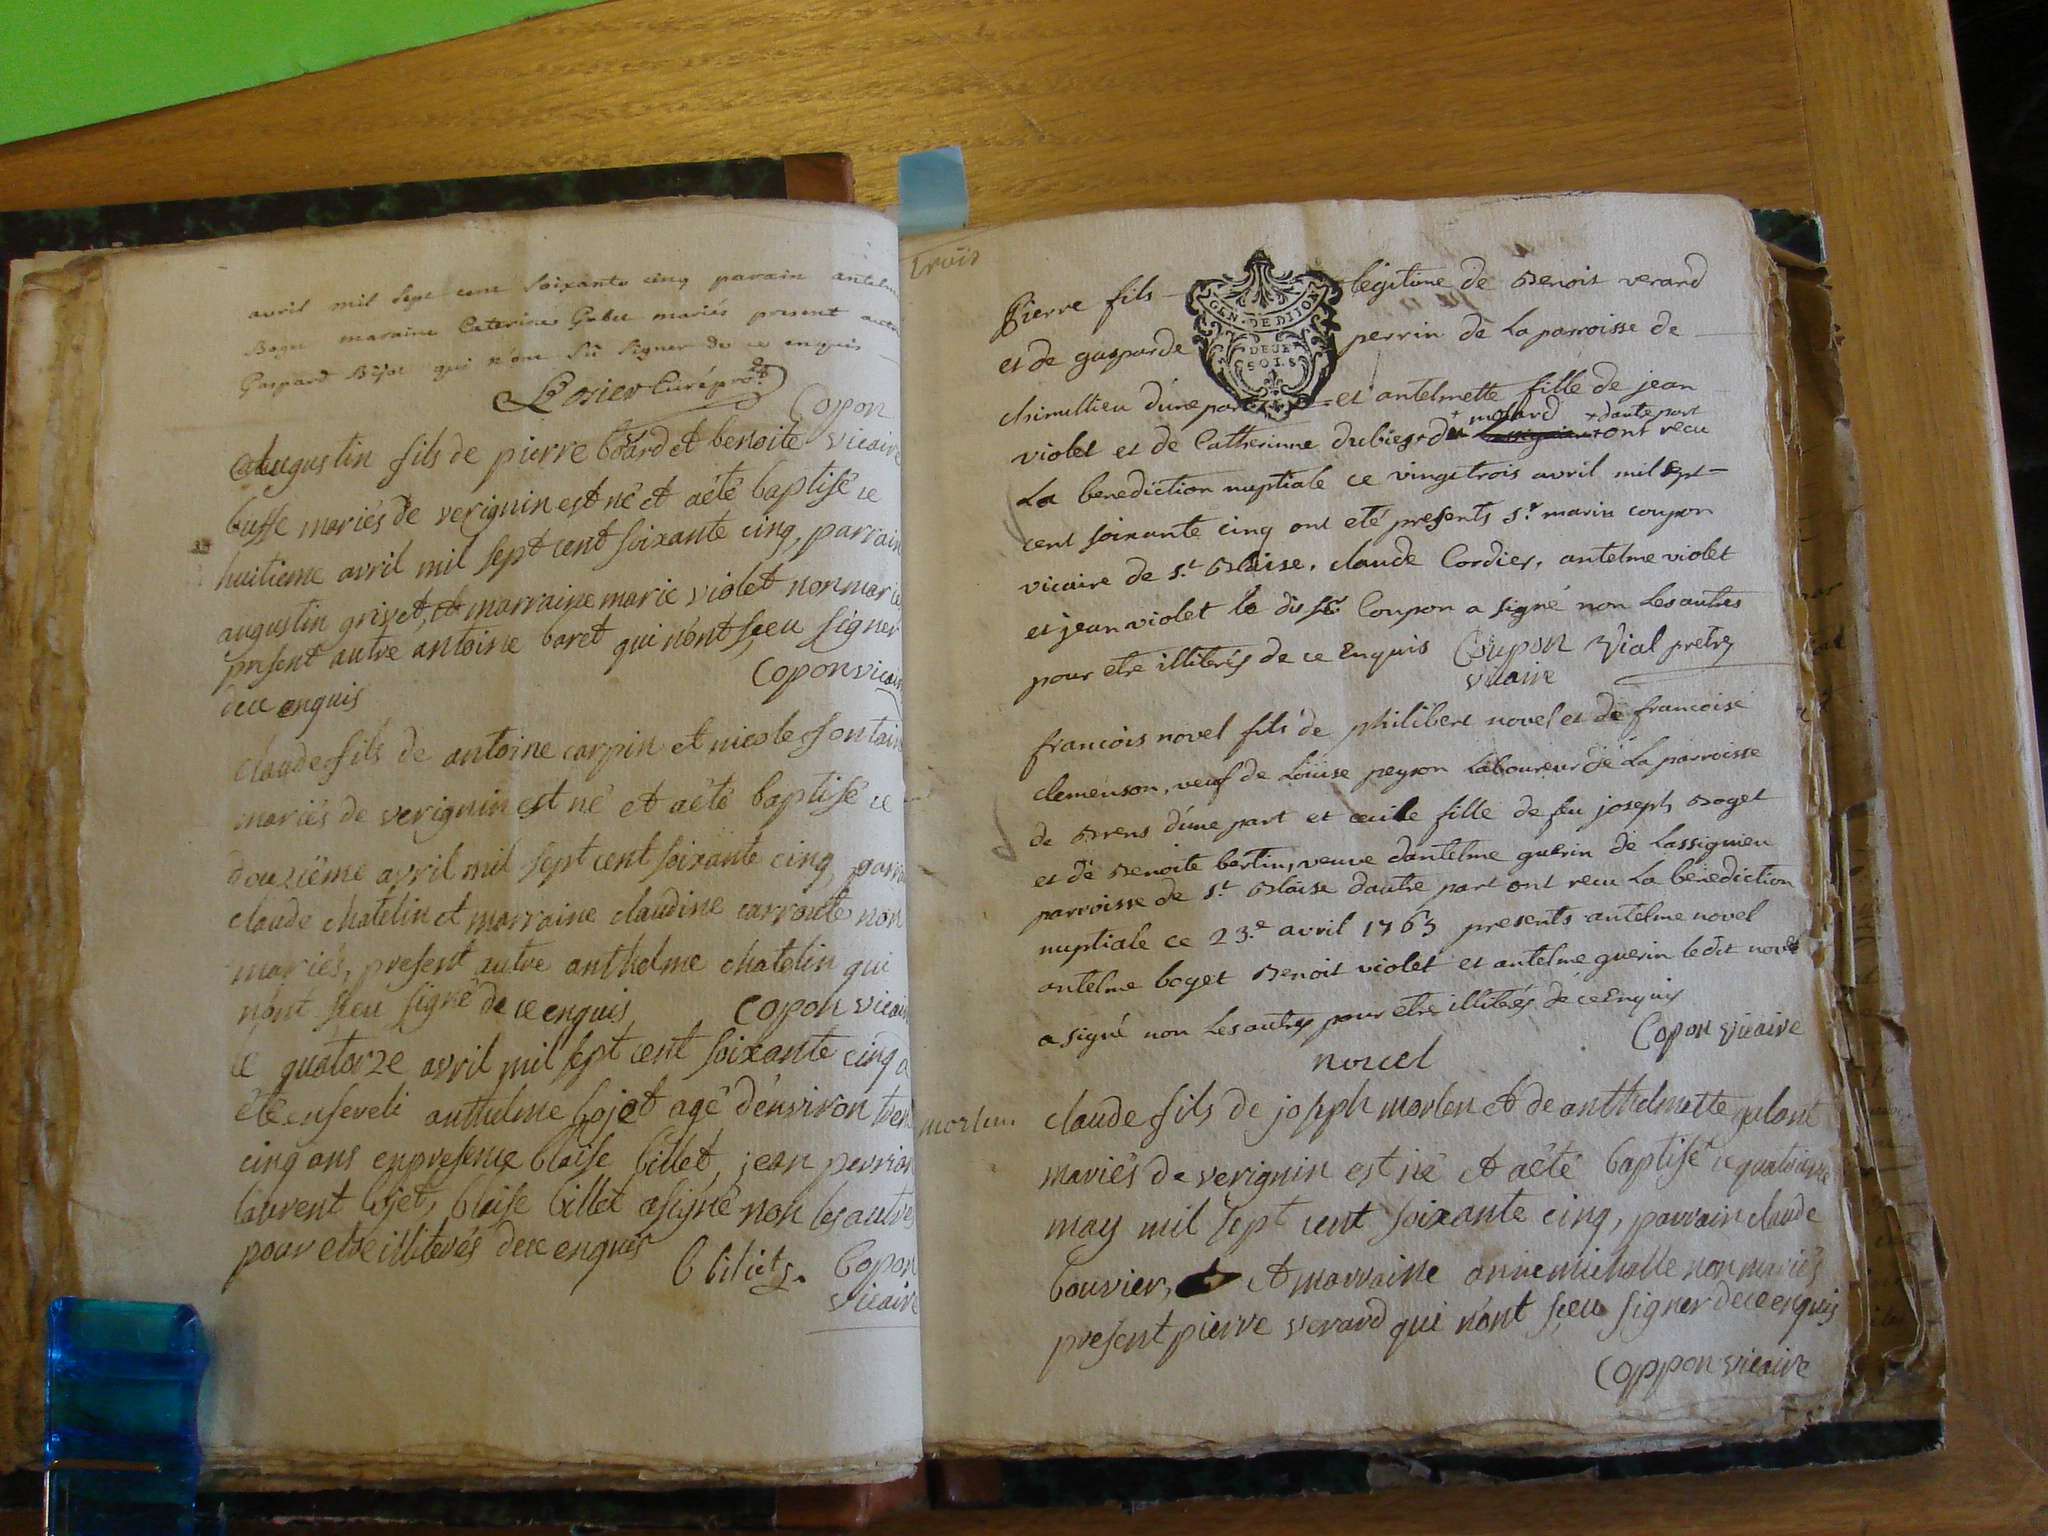 avril mil sept cent soixante cinq parain antelme
Boget maraine Caterine mariés present autre
Gaspard qui n'ont sü signer de ce enquis
Losier Curé
Copon
vicaire
augustin fils de pierre board et benoite
buffe mariés de verignin est né et aété baptisé ce
huitieme avril mil sept cent soixante cinq, parrain
augustin grivet, et marraine marie violet non mariés
present autre antoine baret qui nont sçeu signer
dece enquis
Coponvicaire
claude fils de antoine carpin et nicole fontain
mariés de verignin est né et aété baptisé ce
douzieme avril mil sept cent soixante cinq, parrain
claude chatelin et marraine claudine carronte non
mariés, present autre anthelme chatelin qui
nont sçeu signé de ce enquis Copon vicaire
le quatorze avril mil sept cent soixante cinq a
été enseveli anthelme bojet agé denviron trente
cinq ans enpresence blaise billet, jean perrion
laurent bojet, blaise billet asigné non les autres
pour etre illiterés dece enquis
b biliets. Copon
vicaire
trois
GEN. DE DIJON
DEUX
SOLS
Pierre fils legitime de Benoit verard
et de gasparde perrin de La parroisse de
chimillieu d'une part et antelmette fille de jean
+ molard + dautepart
violet et de Catherinne dubiez + du ont recu
La benediction nuptiale ce vingttrois avril mil sept
cent soixante cinq ont eté presents Sr. marin coupon
vicaire de St. Blaise, claude Cordier, antelme violet
et jean violet le dis sr Coupon a signé non Les autres
pour etre illiterés de ce Enquis Coupon Vial pretre
vicaire
francois novel fils de philibert novel et de francoise
clemenson, veuf de Loüise peyson Laboureur de La parroisse
de Brens d'une part et cecile fille de feu joseph Boget
et de Benoite bertin, veuve dantelme guerin de Lassignieu
parroisse de St. Blaise dautre part ont recu La benediction
nuptiale ce 23.e avril 1765 presents antelme novel
antelme boget Benoit violet et antelme guerin ledit novel
a signé non Les autres pour etre illiterés de ce Enquis
novel Copon vicaire
morlen
claude fils de joseph morlen et de anthelmette galant
mariés de verignin est né et aété baptisé ce quatrieme
may mil sept cent soixante cinq, parrain claude
bouvier, et marraine annemichalle non mariés
present pierre verard qui nont sçeu signer dece enquis
Coppon vicaire